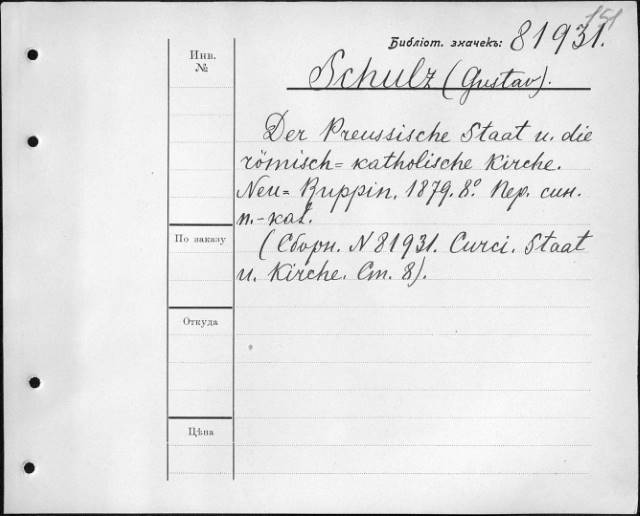 151
Библіот. значекъ: 81931.
Инв.
№
Schulz (Gustav).
Der Preussische Staat u. die
römisch= katholische Kirche.
Neu= Ruppin. 1879. 8º. Пер. син.
п.-кал.
(Сборн. N 81931. Curci. Staat
u. Kirche. Ст. 8).
По заказу
Откуда
Цѣна